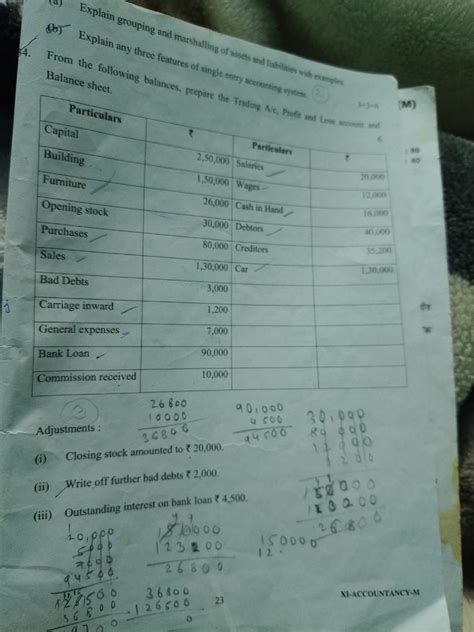 (a) Explain grouping and marshalling of assets and liabilities with examples.
(b) Explain any three features of single entry accounting system.
3+3=6
(M)
34. From the following balances, prepare the Trading A/c, Profit and Loss account and
Balance sheet.
6
Particulars ₹ Particulars ₹
Capital 2,50,000 Salaries 20,000
Building 1,50,000 Wages 12,000
Furniture 26,000 Cash in Hand 16,000
Opening stock 30,000 Debtors 40,000
Purchases 80,000 Creditors 35,200
Sales 1,30,000 Car 1,30,000
Bad Debts 3,000
Carriage inward 1,200
General expenses 7,000
Bank Loan 90,000
Commission received 10,000
3
26800
10000
36800
90,000
4500
94500
30,000
80000
12000
1200
123200
26800
Adjustments :
(i) Closing stock amounted to ₹ 20,000.
(ii) Write off further bad debts ₹ 2,000.
(iii) Outstanding interest on bank loan ₹ 4,500.
20,000
5000
7000
94500
150000
123200
26800
150000
12.
36800
126500
36800
9700
23
XI-ACCOUNTANCY-M